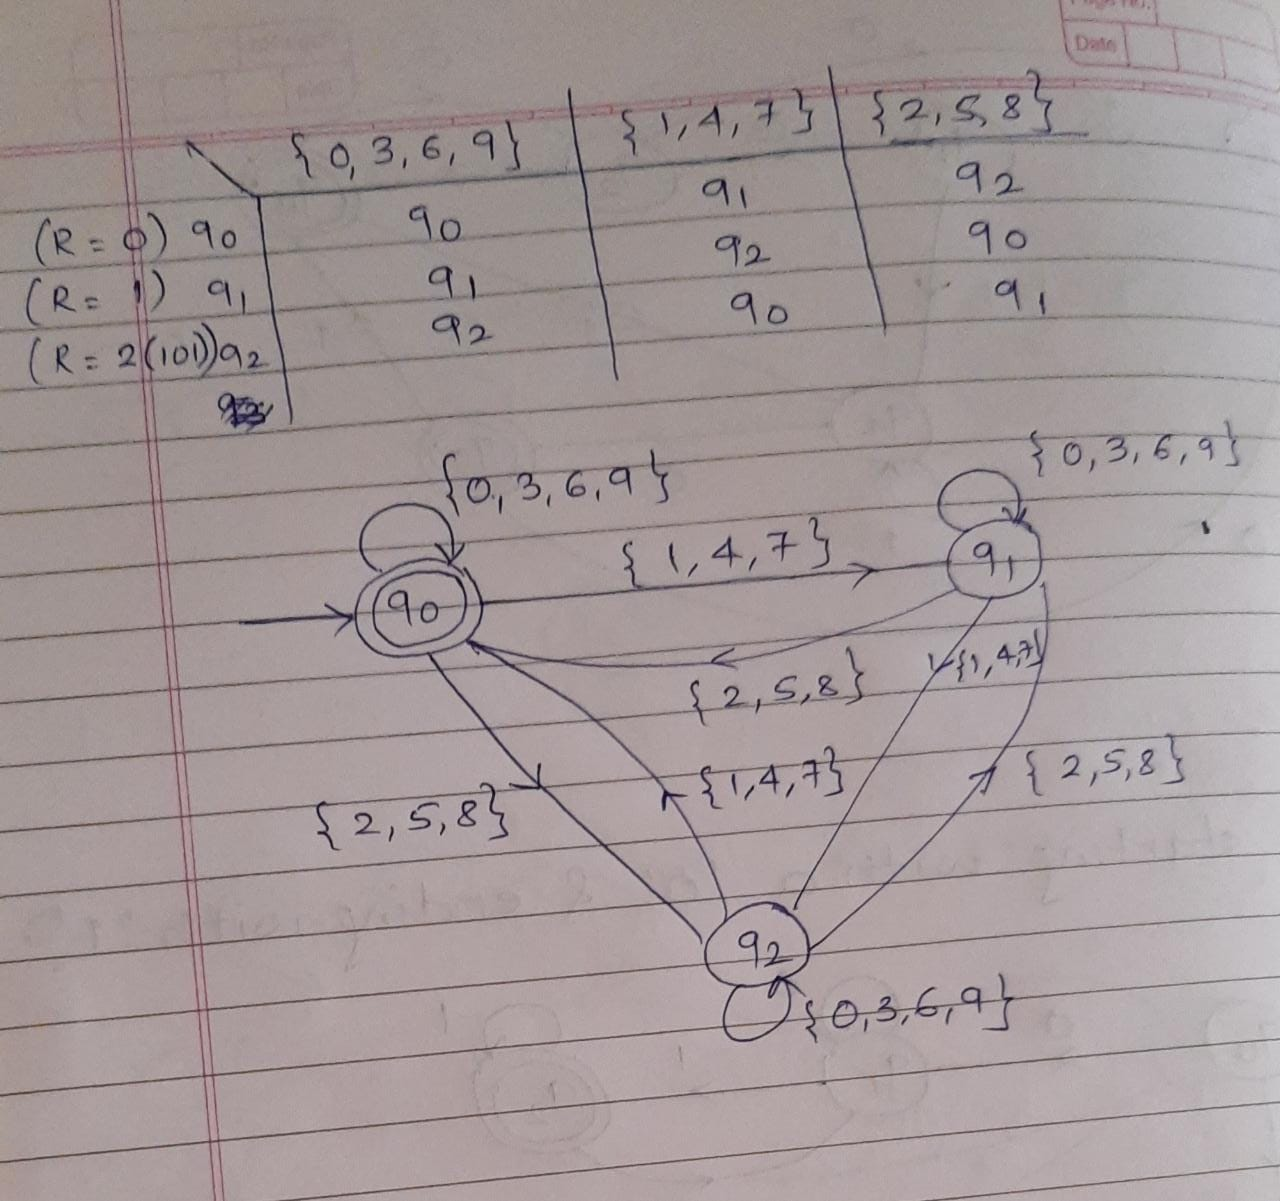 Page No.
Date
{0, 3, 6, 9} {1, 4, 7} {2, 5, 8}
(R = 0) q0 q0 q1 q2
(R = 1) q1 q1 q2 q0
(R = 2(101)) q2 q2 q0 q1
{0, 3, 6, 9}
{0, 3, 6, 9}
{1, 4, 7}
q0
q1
{2, 5, 8}
{1, 4, 7}
{2, 5, 8}
{1, 4, 7}
{2, 5, 8}
q2
{0, 3, 6, 9}